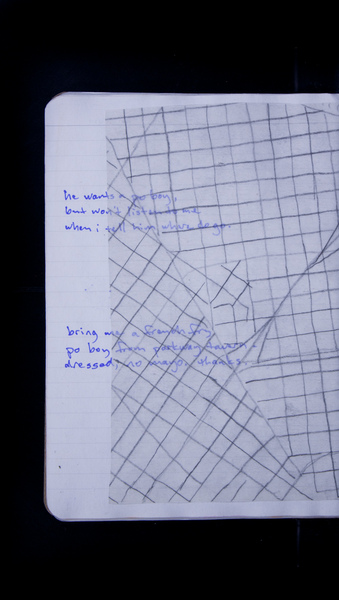 he wants a po boy,
but won't listen to me
when i tell him where to go.
bring me a french fry
po boy from parkway tavern -
dressed, no mayo. thanks.